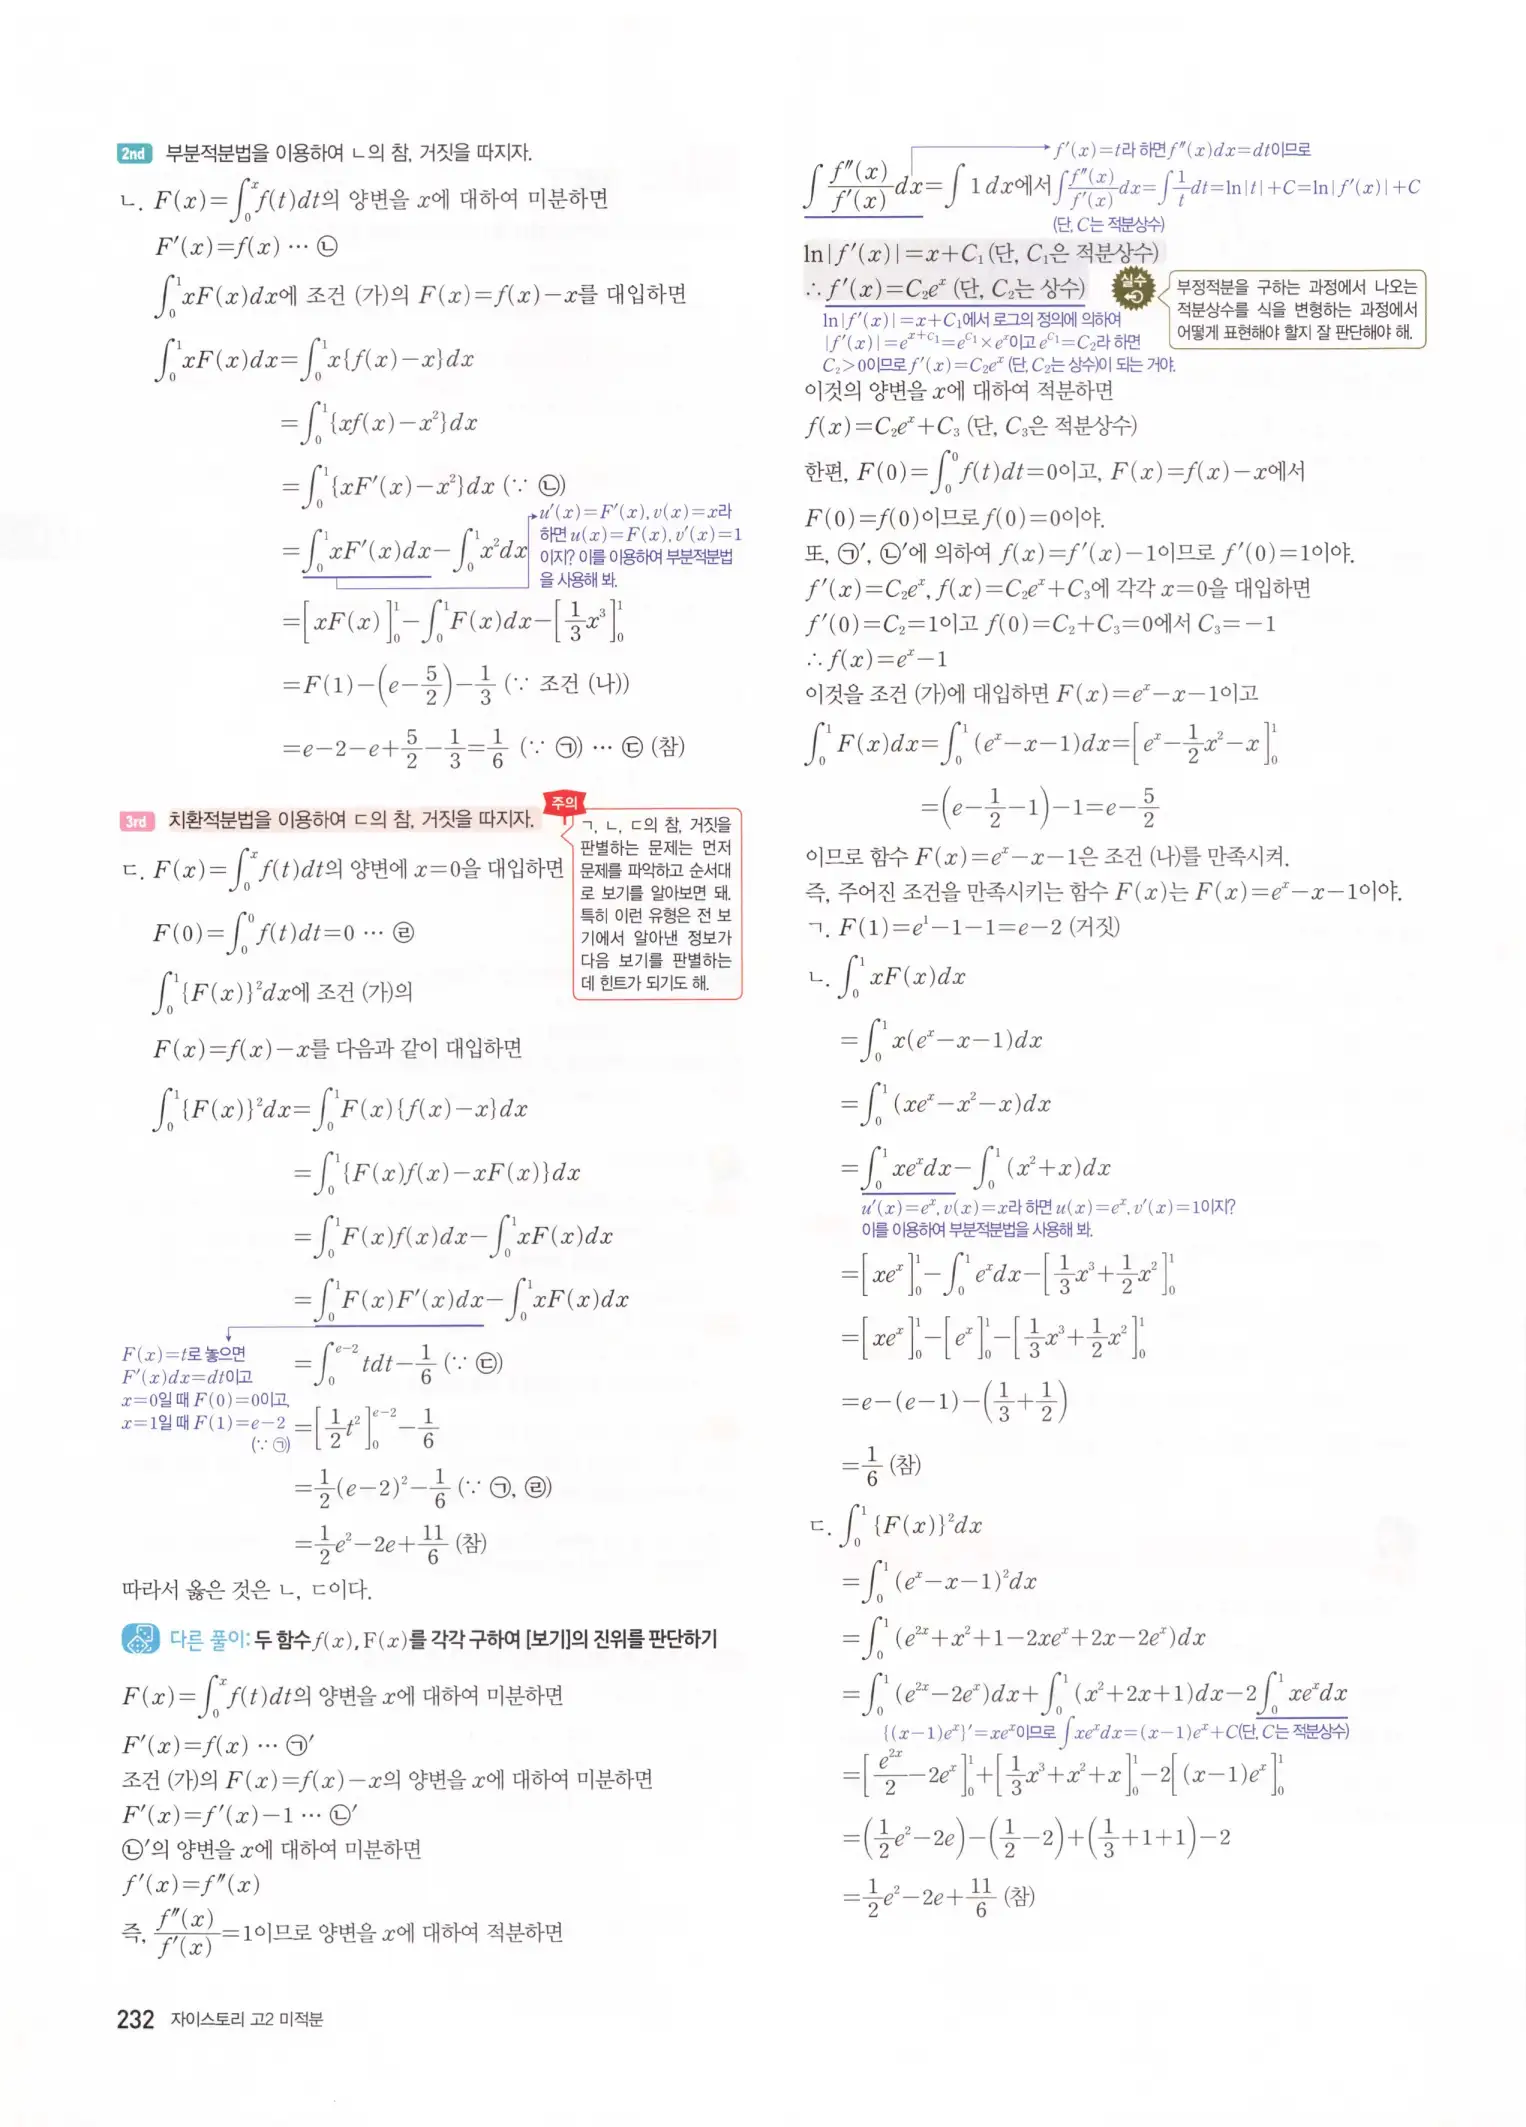 2nd 부분적분법을 이용하여 ㄴ의 참, 거짓을 따지자.
ㄴ. F(x)=∫₀ˣf(t)dt의 양변을 x에 대하여 미분하면
F′(x)=f(x) … ㉡
∫₀¹xF(x)dx에 조건 (가)의 F(x)=f(x)−x를 대입하면
∫₀¹xF(x)dx=∫₀¹x{f(x)−x}dx
=∫₀¹{xf(x)−x²}dx
=∫₀¹{xF′(x)−x²}dx (∵ ㉡)
=∫₀¹xF′(x)dx−∫₀¹x²dx
u′(x)=F′(x), v(x)=x라
하면 u(x)=F(x), v′(x)=1
이지? 이를 이용하여 부분적분법
을 사용해 봐.
=[xF(x)]₀¹−∫₀¹F(x)dx−[1/3 x³]₀¹
=F(1)−(e−5/2)−1/3 (∵ 조건 (나))
=e−2−e+5/2−1/3=1/6 (∵ ㉠) … ㉢ (참)
3rd 치환적분법을 이용하여 ㄷ의 참, 거짓을 따지자.
주의
ㄱ, ㄴ, ㄷ의 참, 거짓을
판별하는 문제는 먼저
문제를 파악하고 순서대
로 보기를 알아보면 돼.
특히 이런 유형은 전 보
기에서 알아낸 정보가
다음 보기를 판별하는
데 힌트가 되기도 해.
ㄷ. F(x)=∫₀ˣf(t)dt의 양변에 x=0을 대입하면
F(0)=∫₀⁰f(t)dt=0 … ㉣
∫₀¹{F(x)}²dx에 조건 (가)의
F(x)=f(x)−x를 다음과 같이 대입하면
∫₀¹{F(x)}²dx=∫₀¹F(x){f(x)−x}dx
=∫₀¹{F(x)f(x)−xF(x)}dx
=∫₀¹F(x)f(x)dx−∫₀¹xF(x)dx
=∫₀¹F(x)F′(x)dx−∫₀¹xF(x)dx
F(x)=t로 놓으면
F′(x)dx=dt이고
x=0일 때 F(0)=0이고,
x=1일 때 F(1)=e−2
(∵ ㉠)
=∫₀^(e−2) tdt−1/6 (∵ ㉢)
=[1/2 t²]₀^(e−2)−1/6
=1/2(e−2)²−1/6 (∵ ㉠, ㉣)
=1/2 e²−2e+11/6 (참)
따라서 옳은 것은 ㄴ, ㄷ이다.
다른 풀이: 두 함수 f(x), F(x)를 각각 구하여 [보기]의 진위를 판단하기
F(x)=∫₀ˣf(t)dt의 양변을 x에 대하여 미분하면
F′(x)=f(x) … ㉠′
조건 (가)의 F(x)=f(x)−x의 양변을 x에 대하여 미분하면
F′(x)=f′(x)−1 … ㉡′
㉡′의 양변을 x에 대하여 미분하면
f′(x)=f″(x)
즉, f″(x)/f′(x)=1이므로 양변을 x에 대하여 적분하면
232 자이스토리 고2 미적분
f′(x)=t라 하면 f″(x)dx=dt이므로
∫f″(x)/f′(x) dx=∫1dx에서 ∫f″(x)/f′(x) dx=∫1/t dt=ln|t|+C=ln|f′(x)|+C
(단, C는 적분상수)
ln|f′(x)|=x+C₁ (단, C₁은 적분상수)
∴ f′(x)=C₂eˣ (단, C₂는 상수)
실수
부정적분을 구하는 과정에서 나오는
적분상수를 식을 변형하는 과정에서
어떻게 표현해야 할지 잘 판단해야 해.
ln|f′(x)|=x+C₁에서 로그의 정의에 의하여
|f′(x)|=e^(x+C₁)=e^(C₁)×eˣ이고 e^(C₁)=C₂라 하면
C₂>0이므로 f′(x)=C₂eˣ (단, C₂는 상수)이 되는 거야.
이것의 양변을 x에 대하여 적분하면
f(x)=C₂eˣ+C₃ (단, C₃은 적분상수)
한편, F(0)=∫₀⁰f(t)dt=0이고, F(x)=f(x)−x에서
F(0)=f(0)이므로 f(0)=0이야.
또, ㉠′, ㉡′에 의하여 f(x)=f′(x)−1이므로 f′(0)=1이야.
f′(x)=C₂eˣ, f(x)=C₂eˣ+C₃에 각각 x=0을 대입하면
f′(0)=C₂=1이고 f(0)=C₂+C₃=0에서 C₃=−1
∴ f(x)=eˣ−1
이것을 조건 (가)에 대입하면 F(x)=eˣ−x−1이고
∫₀¹F(x)dx=∫₀¹(eˣ−x−1)dx=[eˣ−1/2 x²−x]₀¹
=(e−1/2−1)−1=e−5/2
이므로 함수 F(x)=eˣ−x−1은 조건 (나)를 만족시켜.
즉, 주어진 조건을 만족시키는 함수 F(x)는 F(x)=eˣ−x−1이야.
ㄱ. F(1)=e¹−1−1=e−2 (거짓)
ㄴ. ∫₀¹xF(x)dx
=∫₀¹x(eˣ−x−1)dx
=∫₀¹(xeˣ−x²−x)dx
=∫₀¹xeˣdx−∫₀¹(x²+x)dx
u′(x)=eˣ, v(x)=x라 하면 u(x)=eˣ, v′(x)=1이지?
이를 이용하여 부분적분법을 사용해 봐.
=[xeˣ]₀¹−∫₀¹eˣdx−[1/3 x³+1/2 x²]₀¹
=[xeˣ]₀¹−[eˣ]₀¹−[1/3 x³+1/2 x²]₀¹
=e−(e−1)−(1/3+1/2)
=1/6 (참)
ㄷ. ∫₀¹{F(x)}²dx
=∫₀¹(eˣ−x−1)²dx
=∫₀¹(e²ˣ+x²+1−2xeˣ+2x−2eˣ)dx
=∫₀¹(e²ˣ−2eˣ)dx+∫₀¹(x²+2x+1)dx−2∫₀¹xeˣdx
{(x−1)eˣ}′=xeˣ이므로 ∫xeˣdx=(x−1)eˣ+C(단, C는 적분상수)
=[e²ˣ/2−2eˣ]₀¹+[1/3 x³+x²+x]₀¹−2[(x−1)eˣ]₀¹
=(1/2 e²−2e)−(1/2−2)+(1/3+1+1)−2
=1/2 e²−2e+11/6 (참)